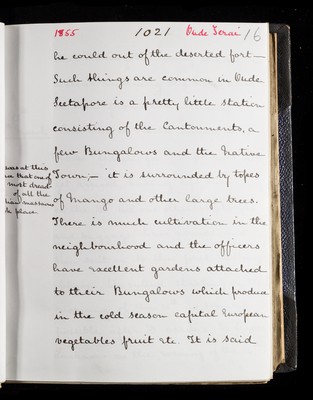 1855 1021 Oude Terai 16
he could out of the deserted fort —
Such things are common in Oude
Seetapore is a pretty little station
consisting of the Cantonments, a
few Bungalows and the Native
Town; — it is surrounded by topes
of Mango and other large trees.
There is much cultivation in the
neighbourhood and the officers
have excellent gardens attached
to their Bungalows which produce
in the cold season capital European
vegetables fruit etc. It is said
was at this
that one of
most dread
of all the
massacres
place